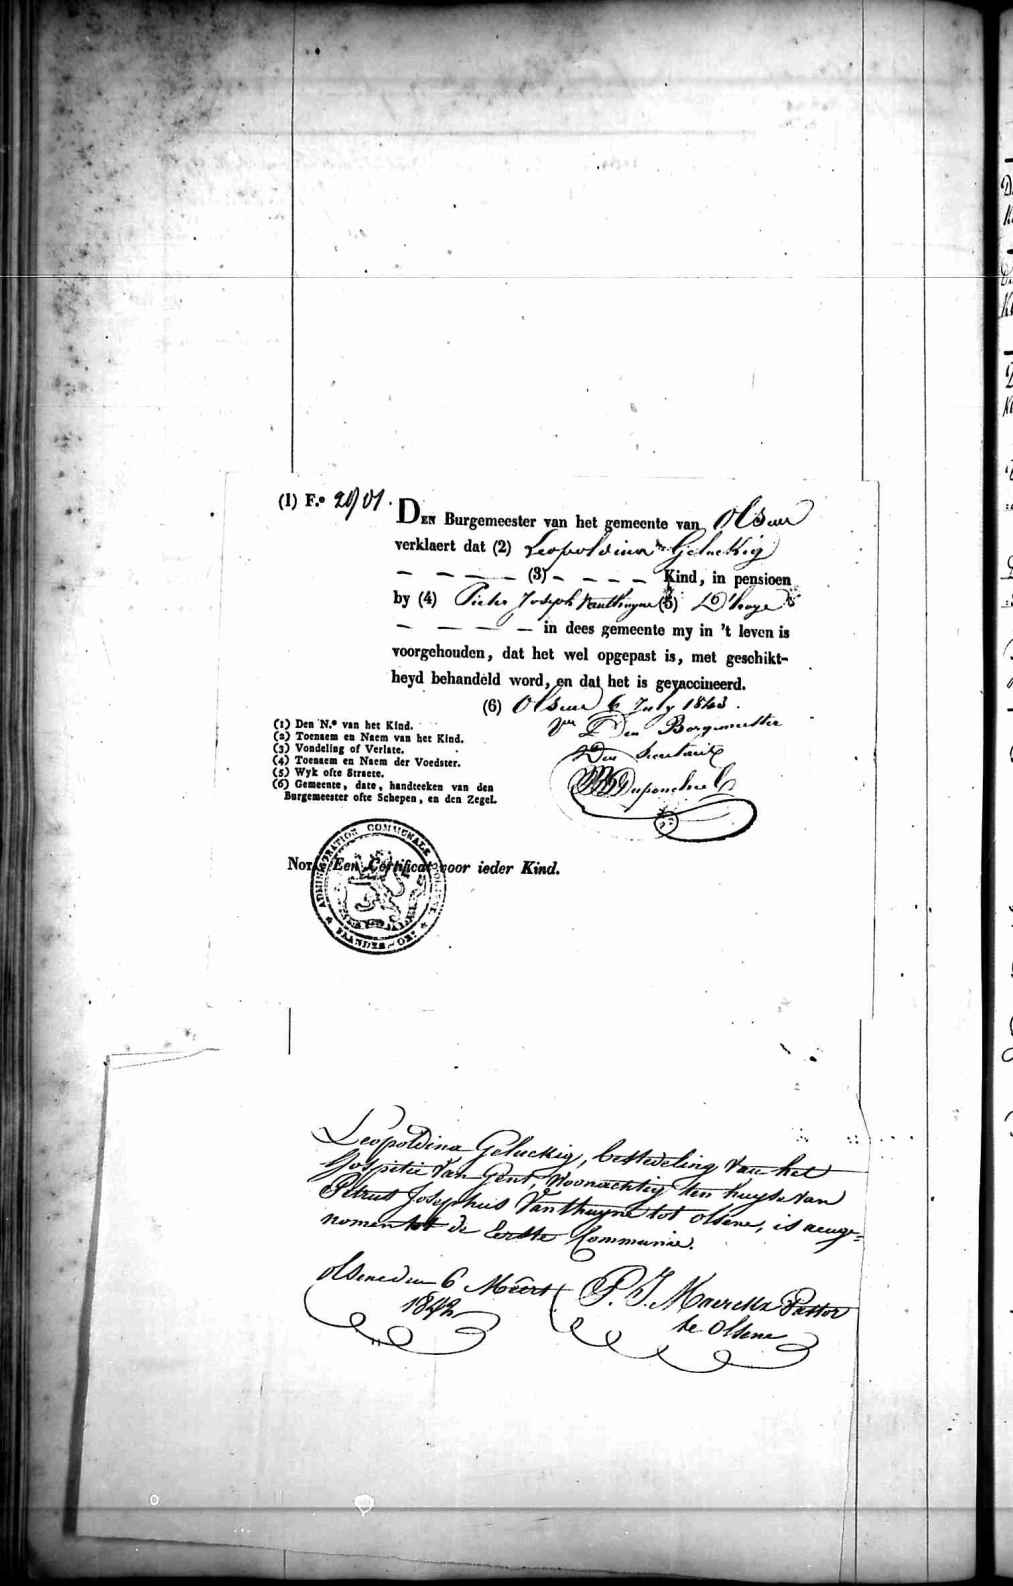 (1) F.º 2901.
DEN Burgemeester van het gemeente van Olsene
verklaert dat (2) Leopoldina Geluckig
– – – – (3) – – – – Kind, in pensioen
by (4) Pieter Joseph Vanthuyne (5)
– – – – in dees gemeente my in 't leven is
voorgehouden, dat het wel opgepast is, met geschikt-
heyd behandeld word, en dat het is gevaccineerd.
(6) Olsene 6 July 1843.
Den Borgemeester
Den Secretaris
Duponcheel
(1) Den N.º van het Kind.
(2) Toenaem en Naem van het Kind.
(3) Vondeling of Verlate.
(4) Toenaem en Naem der Voedster.
(5) Wyk ofte Straete.
(6) Gemeente, date, handteeken van den
Burgemeester ofte Schepen, en den Zegel.
NOTA. Een Certificat voor ieder Kind.
ADMINISTRATION COMMUNALE
FLANDRE-OR.
Leopoldina Geluckig, besteedeling van het
Hospitie van Gent, Woonachtig ten huyse van
Petrus Josephus Vanthuyne tot olsene, is aenge=
nomen tot de Eerste Communie.
olsene den 6 Meert
1842
P. J. Maerckx Pastor
te Olsene